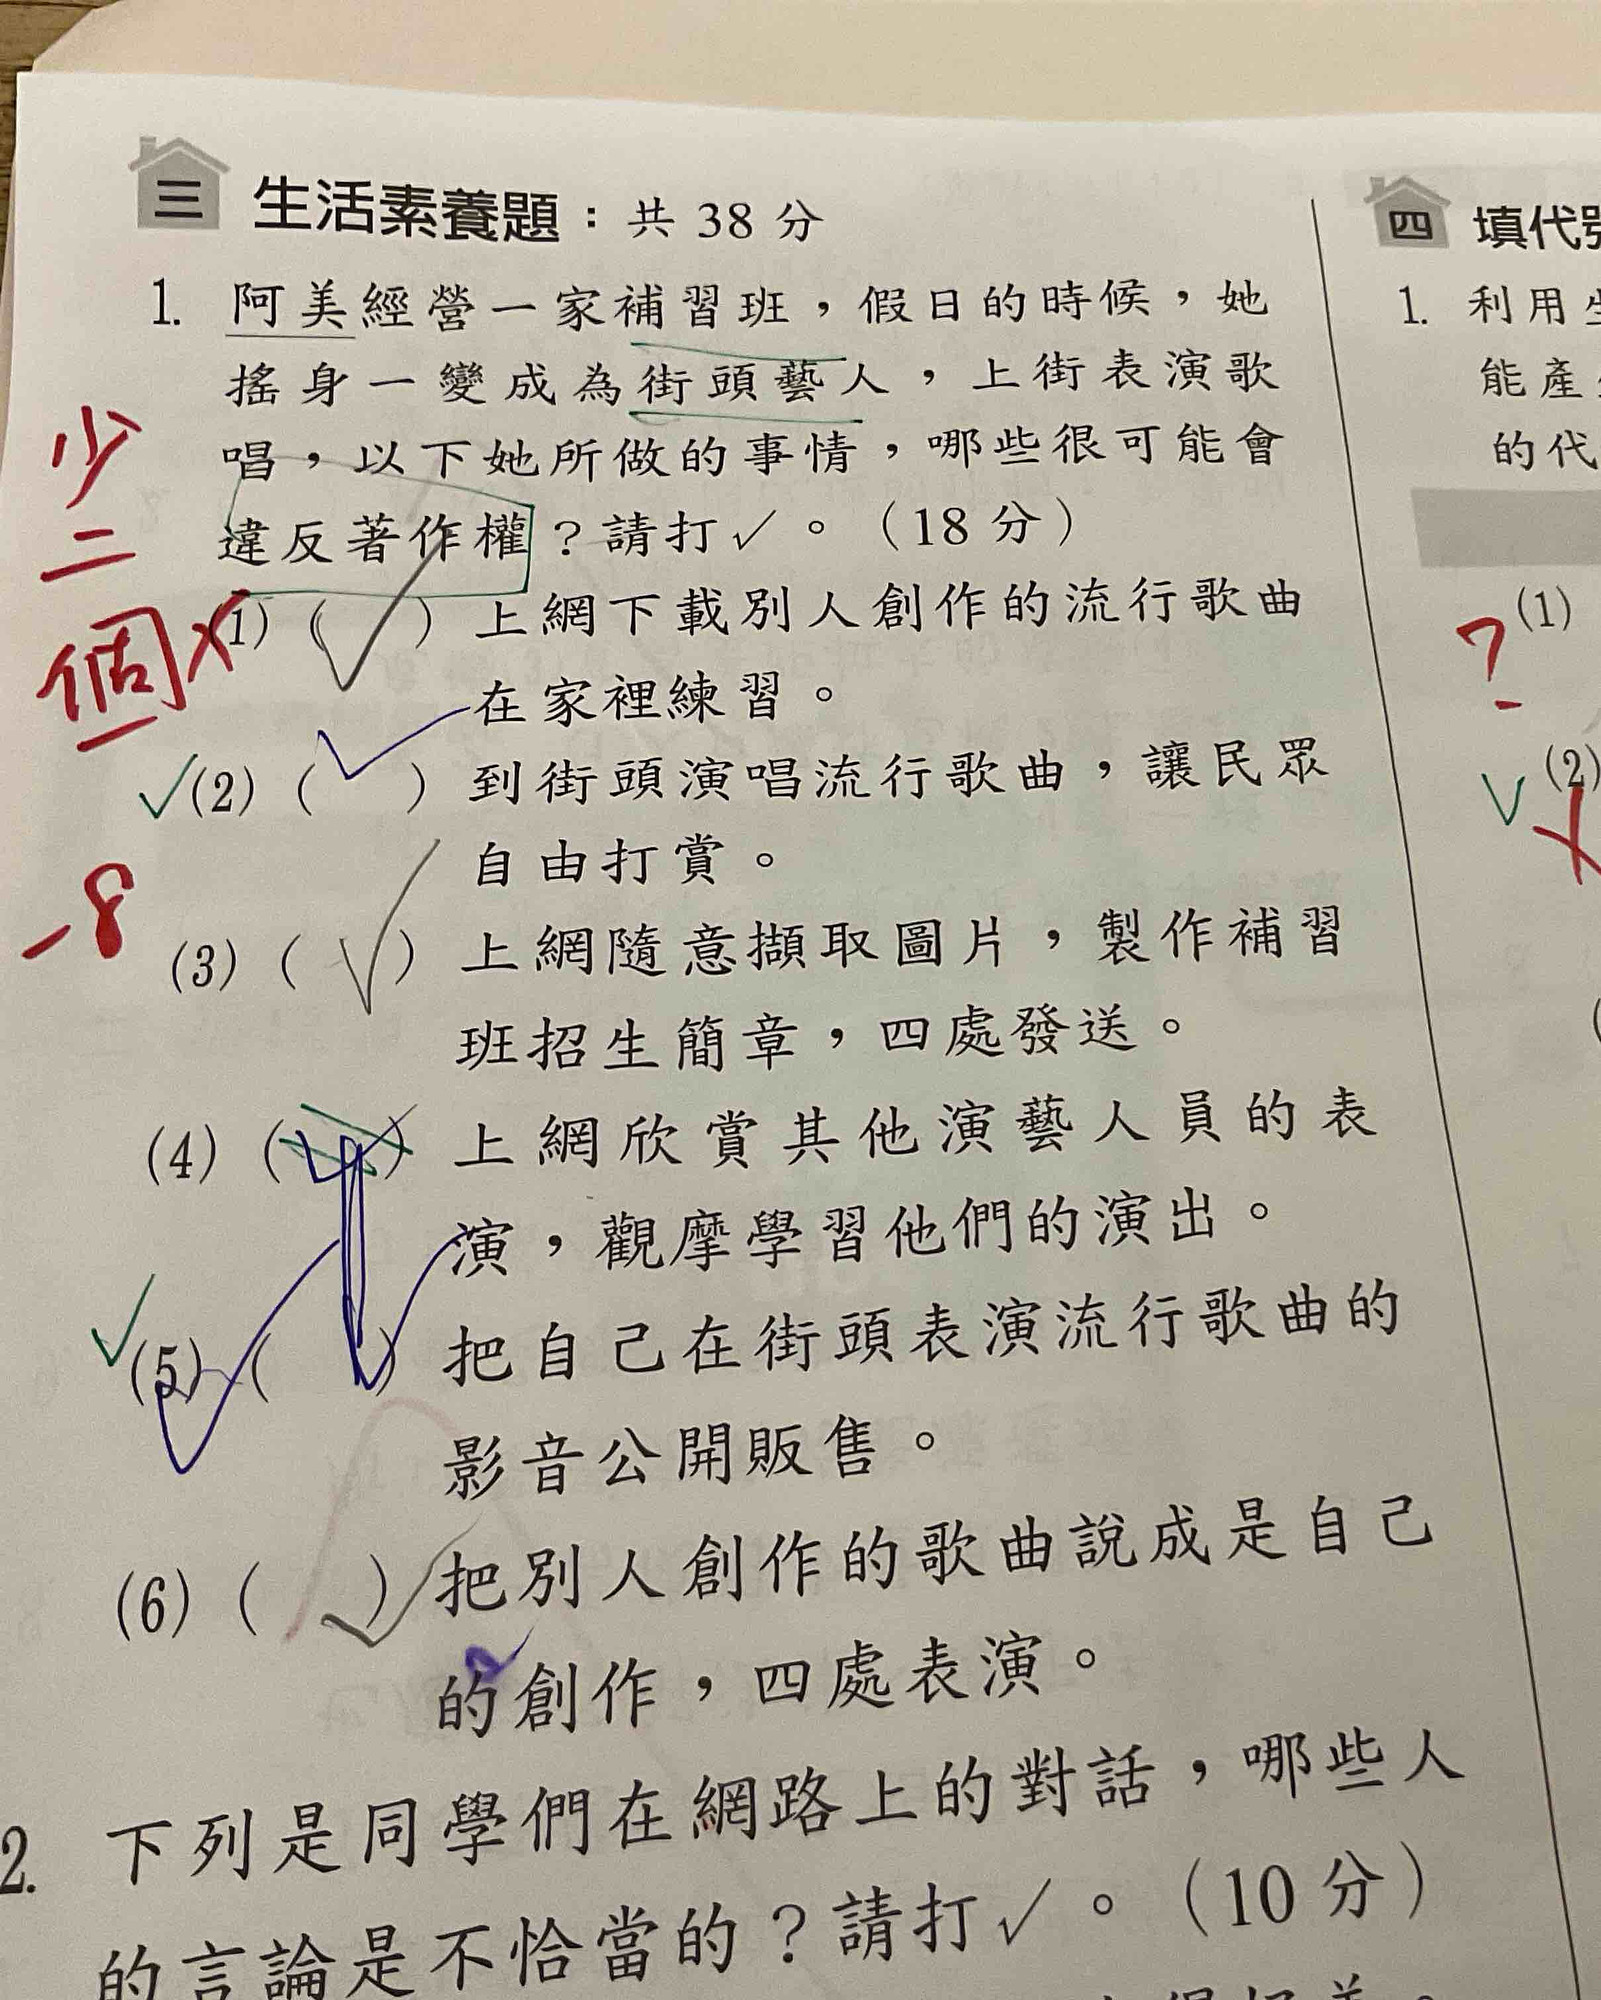 三 生活素養題：共 38 分
1. 阿美經營一家補習班，假日的時候，她
搖身一變成為街頭藝人，上街表演歌
唱，以下她所做的事情，哪些很可能會
違反著作權？請打✓。（18 分）
(1)（✓）上網下載別人創作的流行歌曲
在家裡練習。
✓(2)（✓）到街頭演唱流行歌曲，讓民眾
自由打賞。
(3)（✓）上網隨意擷取圖片，製作補習
班招生簡章，四處發送。
(4)（ ）上網欣賞其他演藝人員的表
演，觀摩學習他們的演出。
✓(5)（✓）把自己在街頭表演流行歌曲的
影音公開販售。
(6)（✓）把別人創作的歌曲說成是自己
的創作，四處表演。
2. 下列是同學們在網路上的對話，哪些人
的言論是不恰當的？請打✓。（10 分）
少
二
個
-8
四 填代
1. 利用
能產
的代
(1)
?
✓(2)